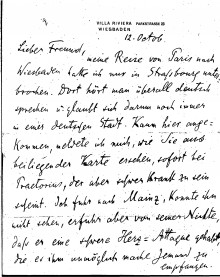 VILLA RIVIERA PARKSTRASSE 23
WIESBADEN
12. Octob.
Lieber Freund,
meine Reise von Paris nach
Wiesbaden hatte ich nur in Strassbourg unter-
brochen. Dort hört man überall deutsch
sprechen u. glaubt sich darum noch immer
in einer deutschen Stadt. Kaum hier ange-
kommen, meldete ich mich, wie Sie aus
beiliegender Karte ersehen, sofort bei
Praetorius, der aber schwer krank zu sein
scheint. Ich fuhr nach Mainz, konnte ihn
nicht sehen, erfuhr aber von seiner Nichte,
daß er eine schwere Herz-Attaque gehabt,
die es ihm unmöglich mache Jemand zu
empfangen.